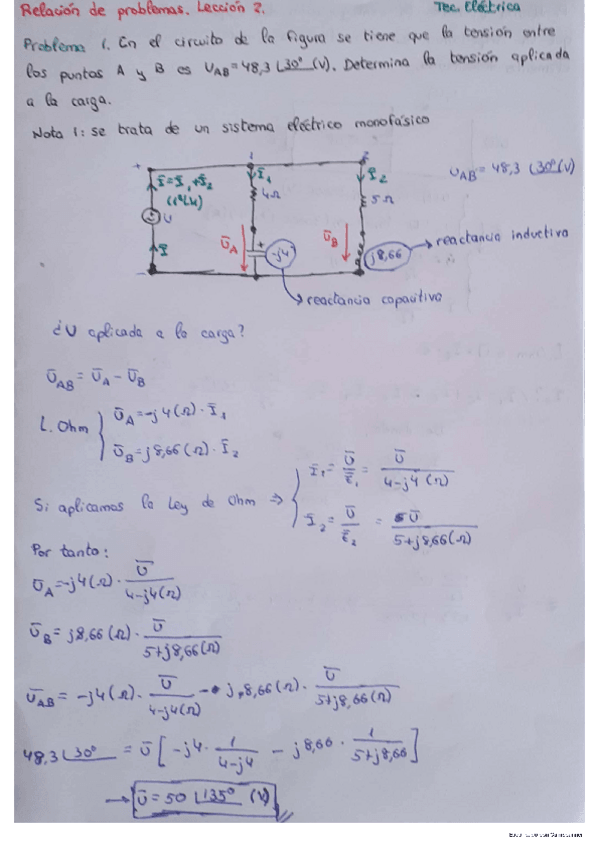 Relación de problemas. Lección 2.
Tec. Eléctrica
Problema 1. En el circuito de la figura se tiene que la tensión entre
los puntos A y B es U_AB = 48,3 ∠30° (V). Determina la tensión aplicada
a la carga.
Nota 1: se trata de un sistema eléctrico monofásico
+ 1 2
Ī = Ī₁ + Ī₂
(1ª L.K)
Ī₁
4Ω
Ī₂
5Ω
U_AB = 48,3 ∠30° (V)
U
Ī
Ū_A
+
-j4
Ū_B
j8,66
reactancia inductiva
-
reactancia capacitiva
¿U aplicada a la carga?
Ū_AB = Ū_A - Ū_B
L. Ohm { Ū_A = -j4(Ω) · Ī₁
Ū_B = j8,66(Ω) · Ī₂
Si aplicamos la Ley de Ohm ⇒ { Ī₁ = Ū / Z̄₁ = Ū / 4-j4 (Ω)
Ī₂ = Ū / Z̄₂ = Ū / 5+j8,66(Ω)
Por tanto:
Ū_A = -j4(Ω) · Ū / 4-j4(Ω)
Ū_B = j8,66(Ω) · Ū / 5+j8,66(Ω)
Ū_AB = -j4(Ω) · Ū / 4-j4(Ω) - j,8,66(Ω) · Ū / 5+j8,66(Ω)
48,3 ∠30° = Ū [ -j4 · 1 / 4-j4 - j8,66 · 1 / 5+j8,66 ]
→ Ū = 50 ∠135° (V)